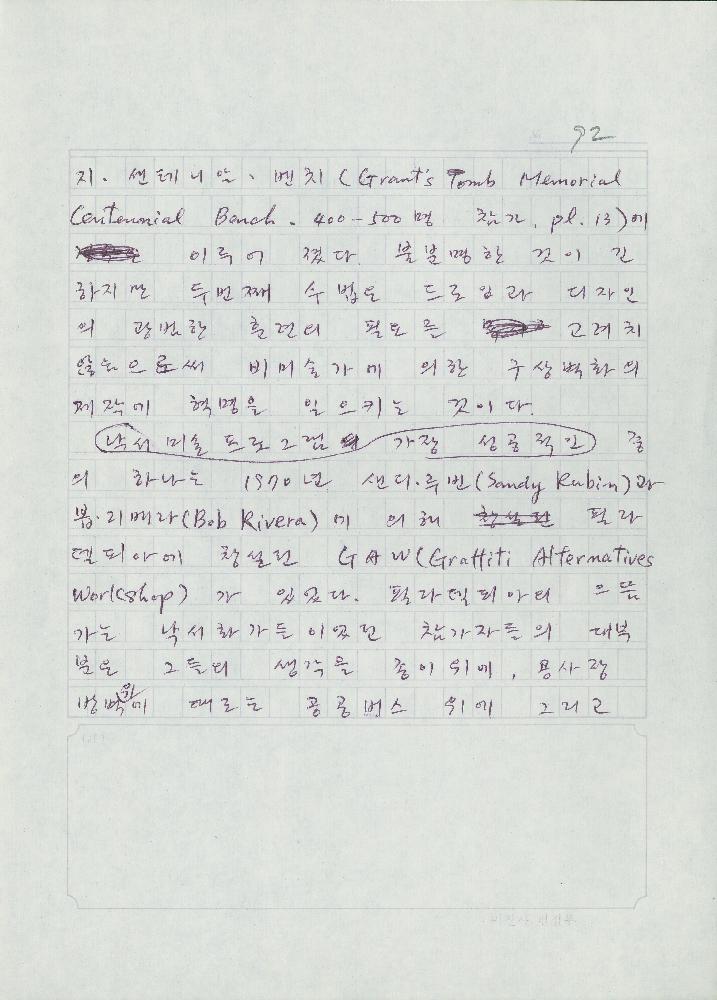 92
지. 센테니얼. 벤치 (Grant's Tomb Memorial
Centennial Bench. 400-500명 참가, pl. 13)에
이루어 졌다. 불분명한 것이 긴
하지만 두번째 수법은 드로잉과 디자인
의 광범한 훈련의 필요를 고려치
않음으로써 비미술가에 의한 구상벽화의
제작에 혁명을 일으키는 것이다.
낙서미술 프로그램 가장 성공적인 중
의 하나는 1970년 샌디.루빈(Sandy Rubin)과
봅.리베라(Bob Rivera)에 의해 창설된 필라
델피아에 창설된 GAW(Graffiti Alternatives
Workshop)가 있었다. 필라델피아의 으뜸
가는 낙서화가들이었던 참가자들의 대부
분은 그들의 생각을 종이위에, 용사장
방벽위에 때로는 공공버스 위에 그리고